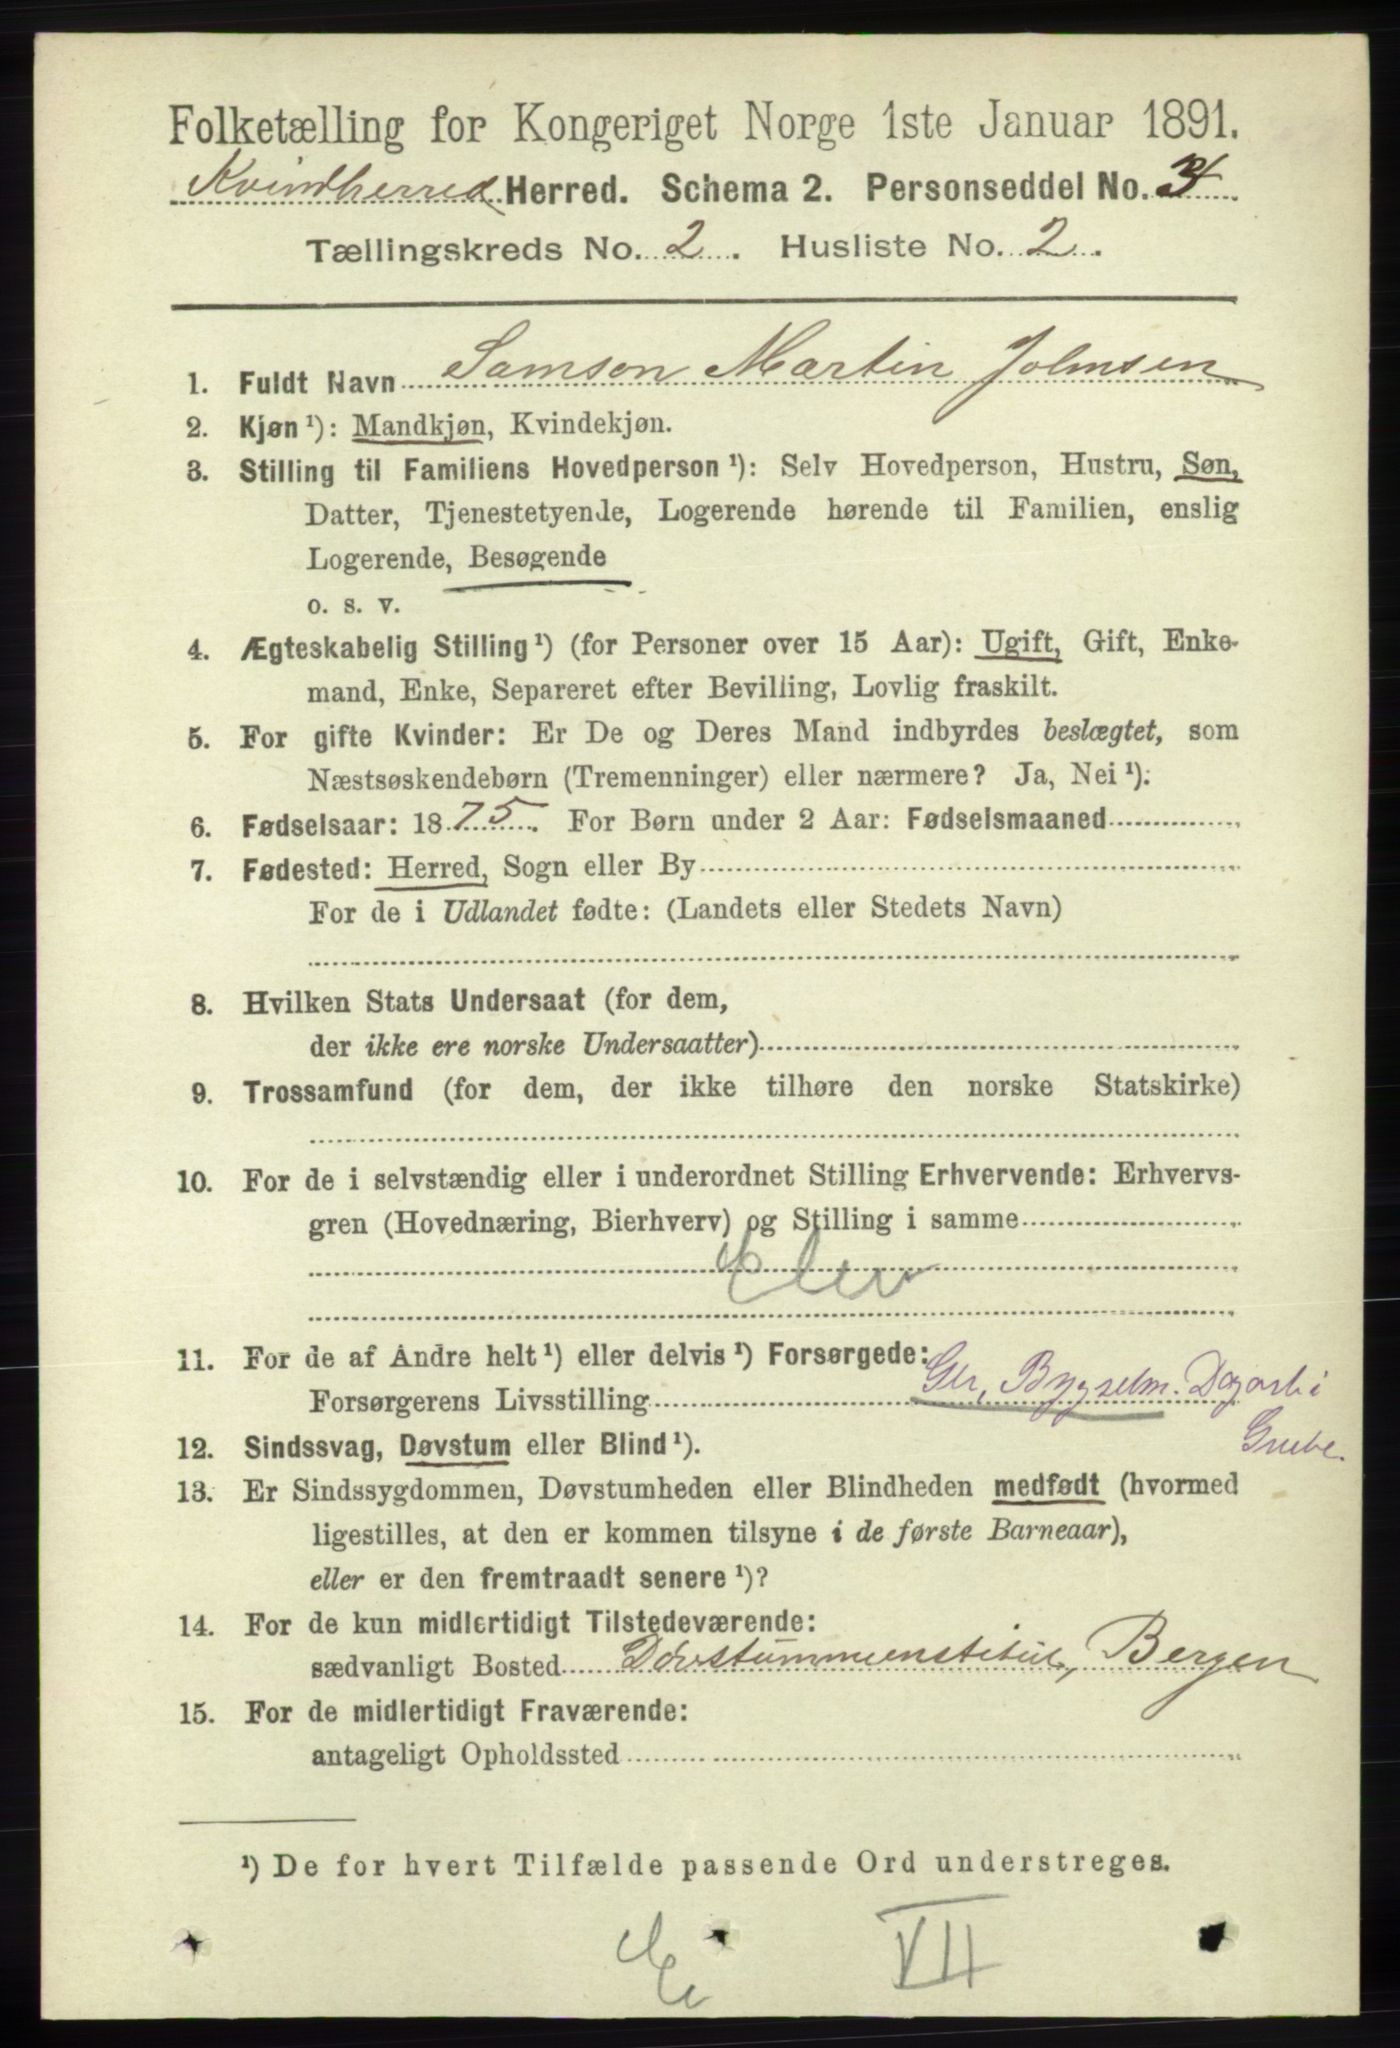 Folketælling for Kongeriget Norge 1ste Januar 1891.
Kvindherred Herred. Schema 2. Personseddel No. 34
Tællingskreds No. 2. Husliste No. 2.
1. Fuldt Navn Samson Martin Johnsen
2. Kjøn ¹): Mandkjøn, Kvindekjøn.
3. Stilling til Familiens Hovedperson ¹): Selv Hovedperson, Hustru, Søn,
Datter, Tjenestetyende, Logerende hørende til Familien, enslig
Logerende, Besøgende
o. s. v.
4. Ægteskabelig Stilling ¹) (for Personer over 15 Aar): Ugift, Gift, Enke-
mand, Enke, Separeret efter Bevilling, Lovlig fraskilt.
5. For gifte Kvinder: Er De og Deres Mand indbyrdes beslægtet, som
Næstsøskendebørn (Tremenninger) eller nærmere? Ja, Nei ¹):
6. Fødselsaar: 1875. For Børn under 2 Aar: Fødselsmaaned
7. Fødested: Herred, Sogn eller By
For de i Udlandet fødte: (Landets eller Stedets Navn)
8. Hvilken Stats Undersaat (for dem,
der ikke ere norske Undersaatter)
9. Trossamfund (for dem, der ikke tilhøre den norske Statskirke)
10. For de i selvstændig eller i underordnet Stilling Erhvervende: Erhvervs-
gren (Hovednæring, Bierhverv) og Stilling i samme
Elev
11. For de af Andre helt ¹) eller delvis ¹) Forsørgede:
Forsørgerens Livsstilling Gbr, Bygselm. Dagarb i
Grube.
12. Sindssvag, Døvstum eller Blind ¹).
13. Er Sindssygdommen, Døvstumheden eller Blindheden medfødt (hvormed
ligestilles, at den er kommen tilsyne i de første Barneaar),
eller er den fremtraadt senere ¹)?
14. For de kun midlertidigt Tilstedeværende:
sædvanligt Bosted Døvstummeinstitut, Bergen
15. For de midlertidigt Fraværende:
antageligt Opholdssted
¹) De for hvert Tilfælde passende Ord understreges.
VII